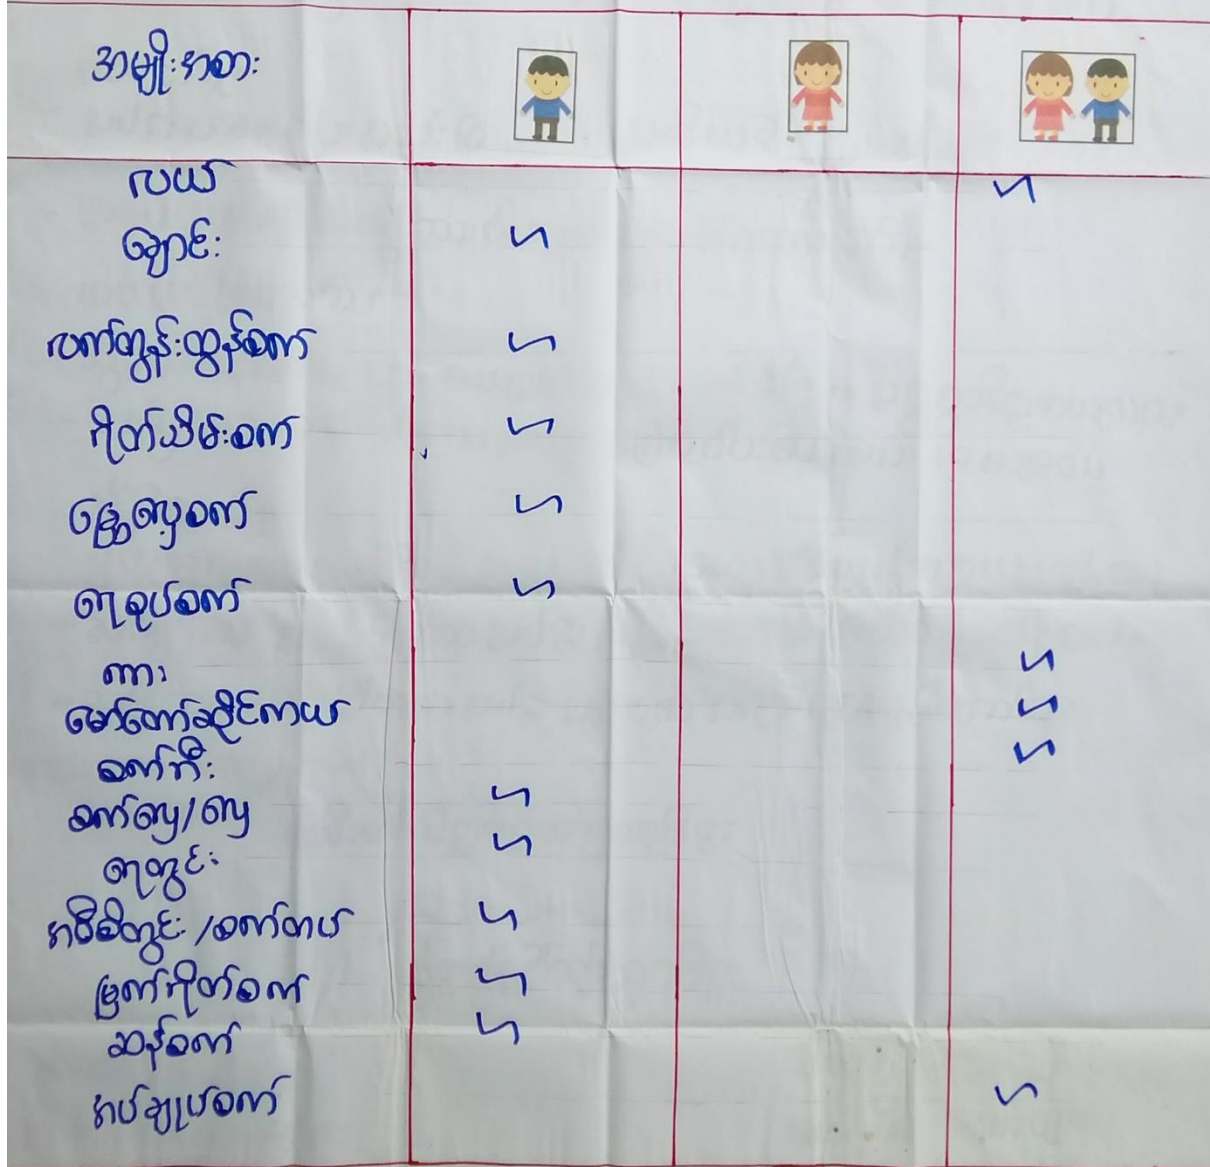 အမျိုးအစား
လယ် ✓
ချောင်း ✓
လက်တွန်းထွန်စက် ✓
ရိတ်သိမ်းစက် ✓
ခြွေလှေ့စက် ✓
ရေစုပ်စက် ✓
ကား ✓
မော်တော်ဆိုင်ကယ် ✓
စက်ဘီး ✓
စက်လှေ/လှေ ✓
ရေတွင်း ✓
အဝီစိတွင်း /စက်တယ် ✓
မြက်ရိတ်စက် ✓
ဆန်စက် ✓
အပ်ချုပ်စက် ✓